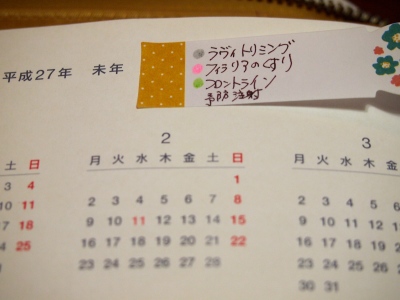 平成27年 未年
ラヴィトリミング
フィラリアのくすり
フロントライン
予防注射
2
3
土 日
月 火 水 木 金 土 日
月 火 水 木 金 土
3 4
1
10 11
2 3 4 5 6 7 8
17 18
9 10 11 12 13 14 15
24 25
16 17 18 19 20 21 22
23 24 25 26 27 28
30 31